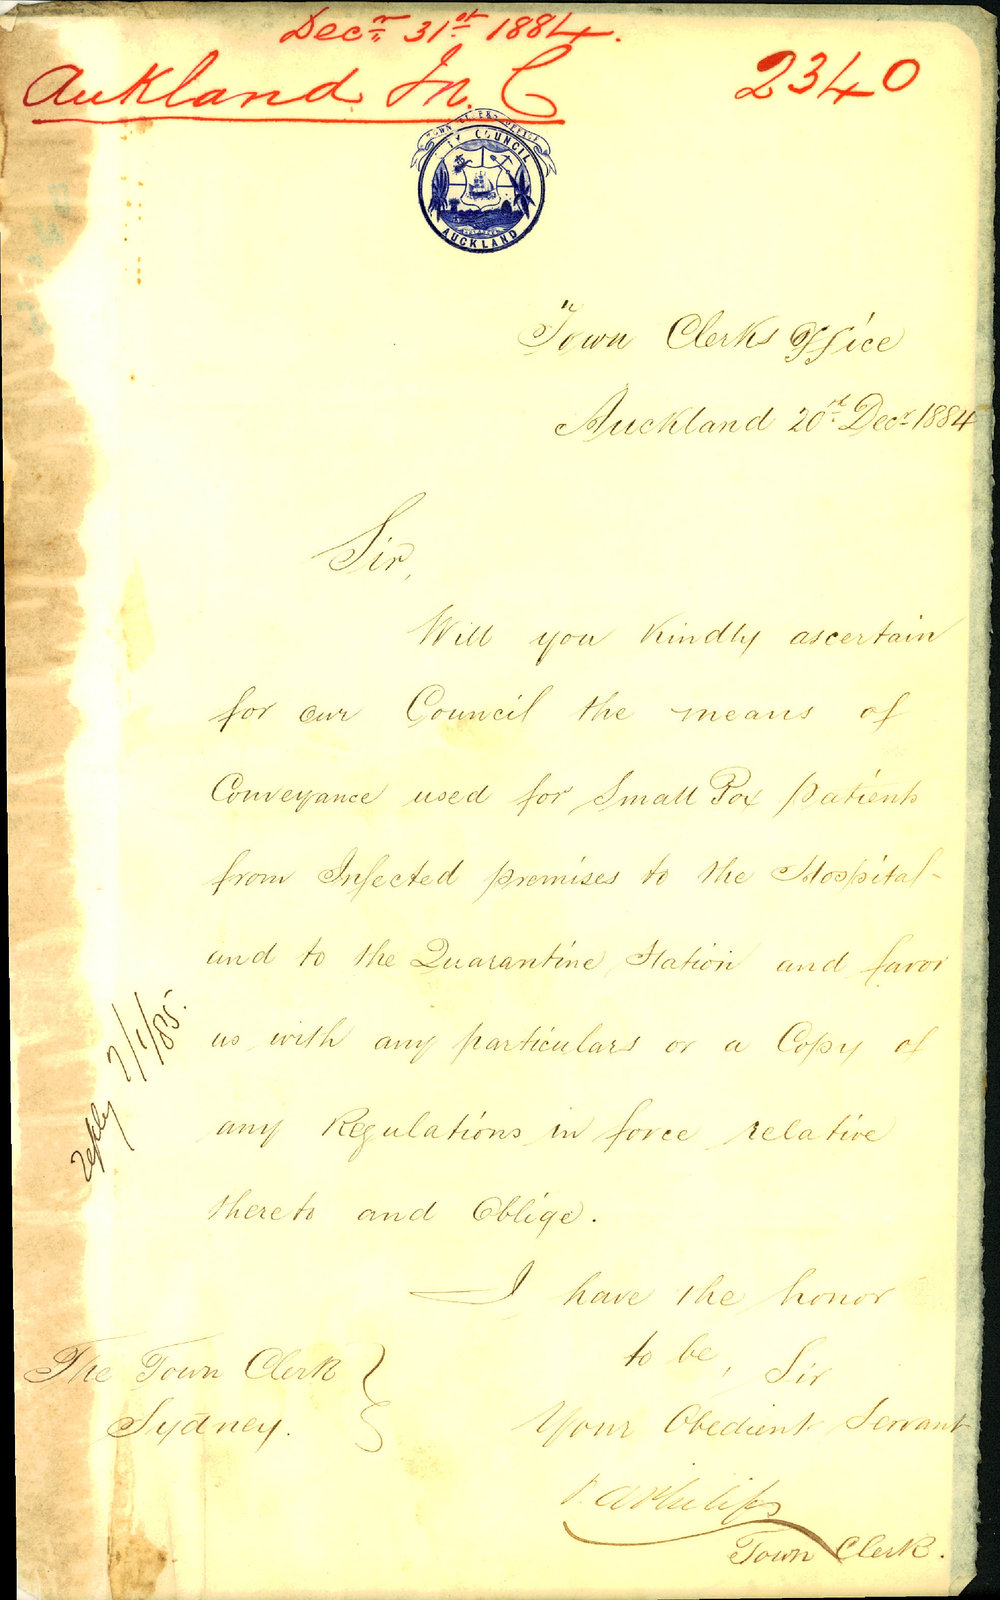 Decr 31st 1884.
Auckland M. C
2340
TOWN CLERKS OFFICE
CITY COUNCIL
AUCKLAND
Town Clerks Office
Auckland 20th Decr 1884
Sir,
Will you kindly ascertain
for our Council the means of
Conveyance used for Small Pox patients
from Infected premises to the Hospital-
and to the Quarantine Station and favor
us with any particulars or a Copy of
any Regulations in force relative
thereto and Oblige.
reply 7/1/85.
I have the honor
to be, Sir
Your Obedient Servant
Philips
Town Clerk.
The Town Clerk
Sydney.